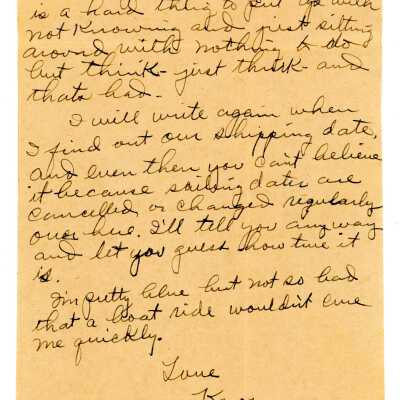 is a hard thing to put up with
not knowing and just sitting
around with nothing to do
but think - just think - and
thats bad.
I will write again when
I find out our shipping date,
and even then you can't believe
it because sailing dates are
cancelled or changed regularly
over here. I'll tell you anyway
and let you guess how true it
is.
I'm putty blue but not so bad
that a boat ride wouldn't cure
me quickly.
Love